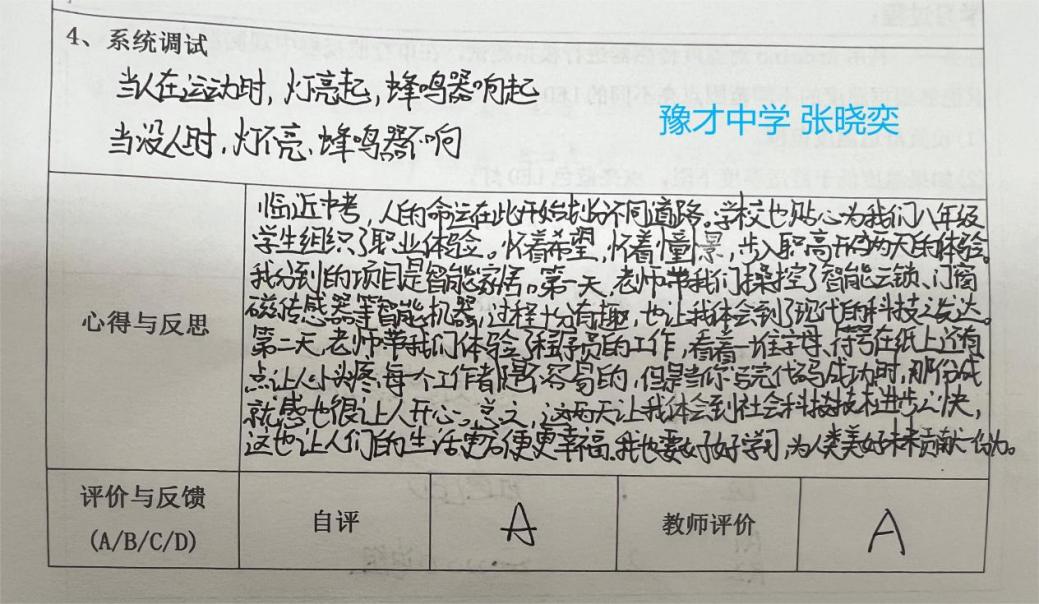 4、系统调试
当人在运动时，灯亮起，蜂鸣器响起
豫才中学 张晓奕
当没人时，灯不亮、蜂鸣器不响
心得与反思
临近中考，人的命运在此开始划分不同道路。学校也贴心为我们八年级
学生组织了职业体验。怀着希望，怀着憧憬，步入职高开启两天的体验。
我分到的项目是智能家居。第一天，老师带我们操控了智能云锁、门窗
磁传感器等智能机器，过程十分有趣，也让我体会到了现代的科技之发达。
第二天，老师带我们体验了程序员的工作，看着一堆字母、符号在纸上还有
点让人小头疼，每个工作者都是不容易的，但是当你写完代码成功时，那份成
就感也很让人开心。总之，这两天让我体会到社会科技技术进步之快，
这也让人们的生活更方便更幸福。我也要好好学习，为人类美好未来贡献一份力。
评价与反馈
(A/B/C/D)
自评
A
教师评价
A